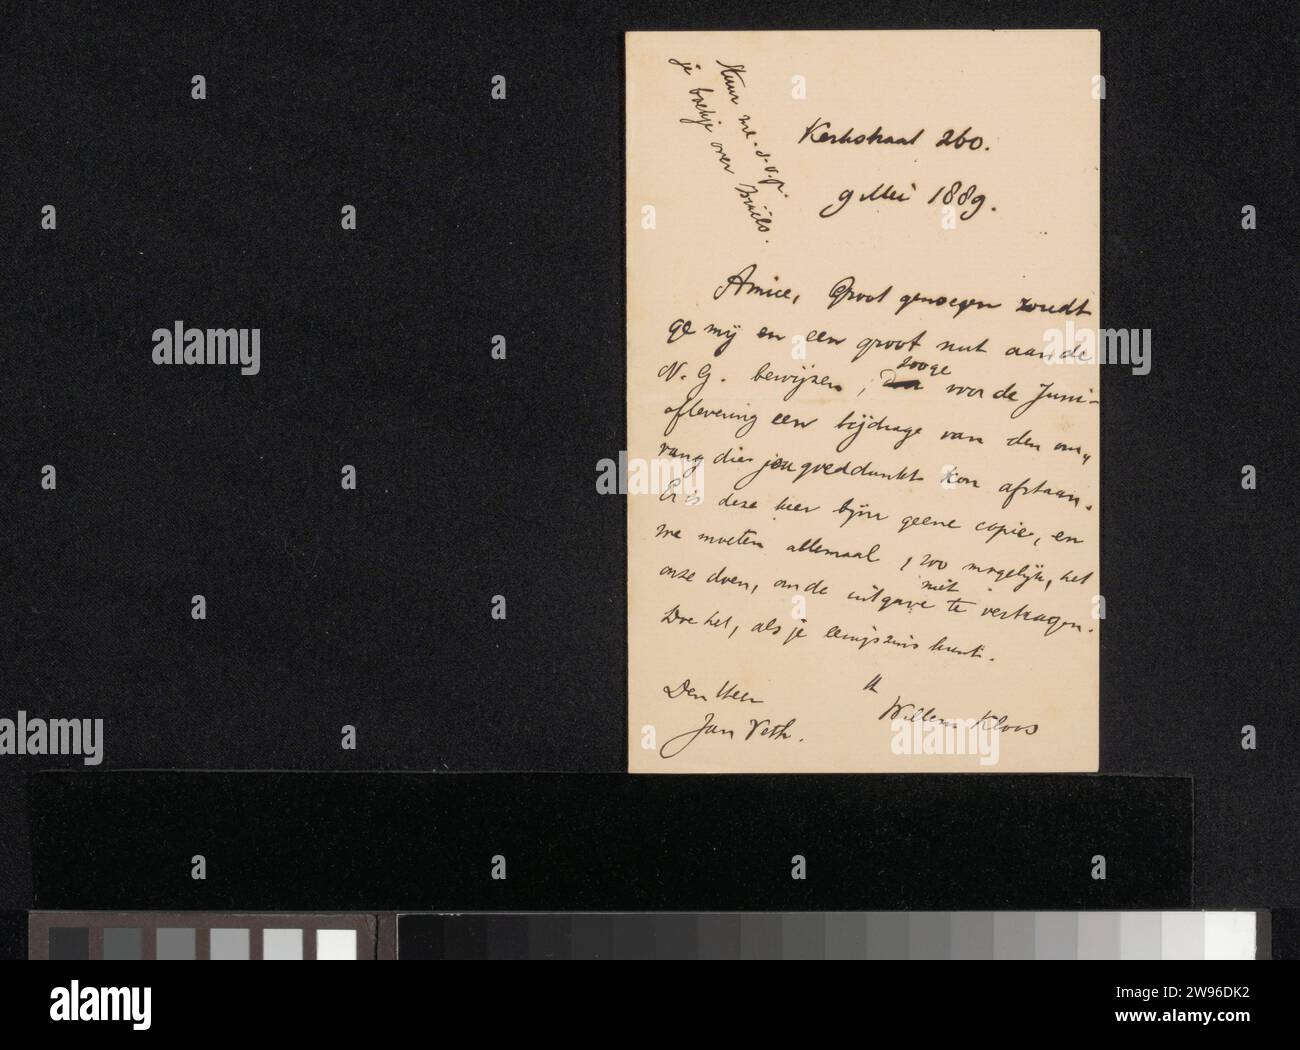 Stuur me s.v.p.
je boekje over
Kerkstraat 260.
9 Mei 1889.
Amice, Groot genoegen zoudt
ge mij en een groot nut aan de
N. G. bewijzen, zooge voor de Juni-
aflevering een bijdrage van den om-
vang dien jou goeddunkt kon afstaan.
Er is deze keer bijna geene copie, en
we moeten allemaal, zoo mogelijk, het
onze doen, om de uitgave niet te vertragen.
Doe het, als je eenigszins kunt.
tt
Willem Kloos
Den Heer
Jan Veth.
alamy
alamy
Image ID: 2W96DK2
www.alamy.com